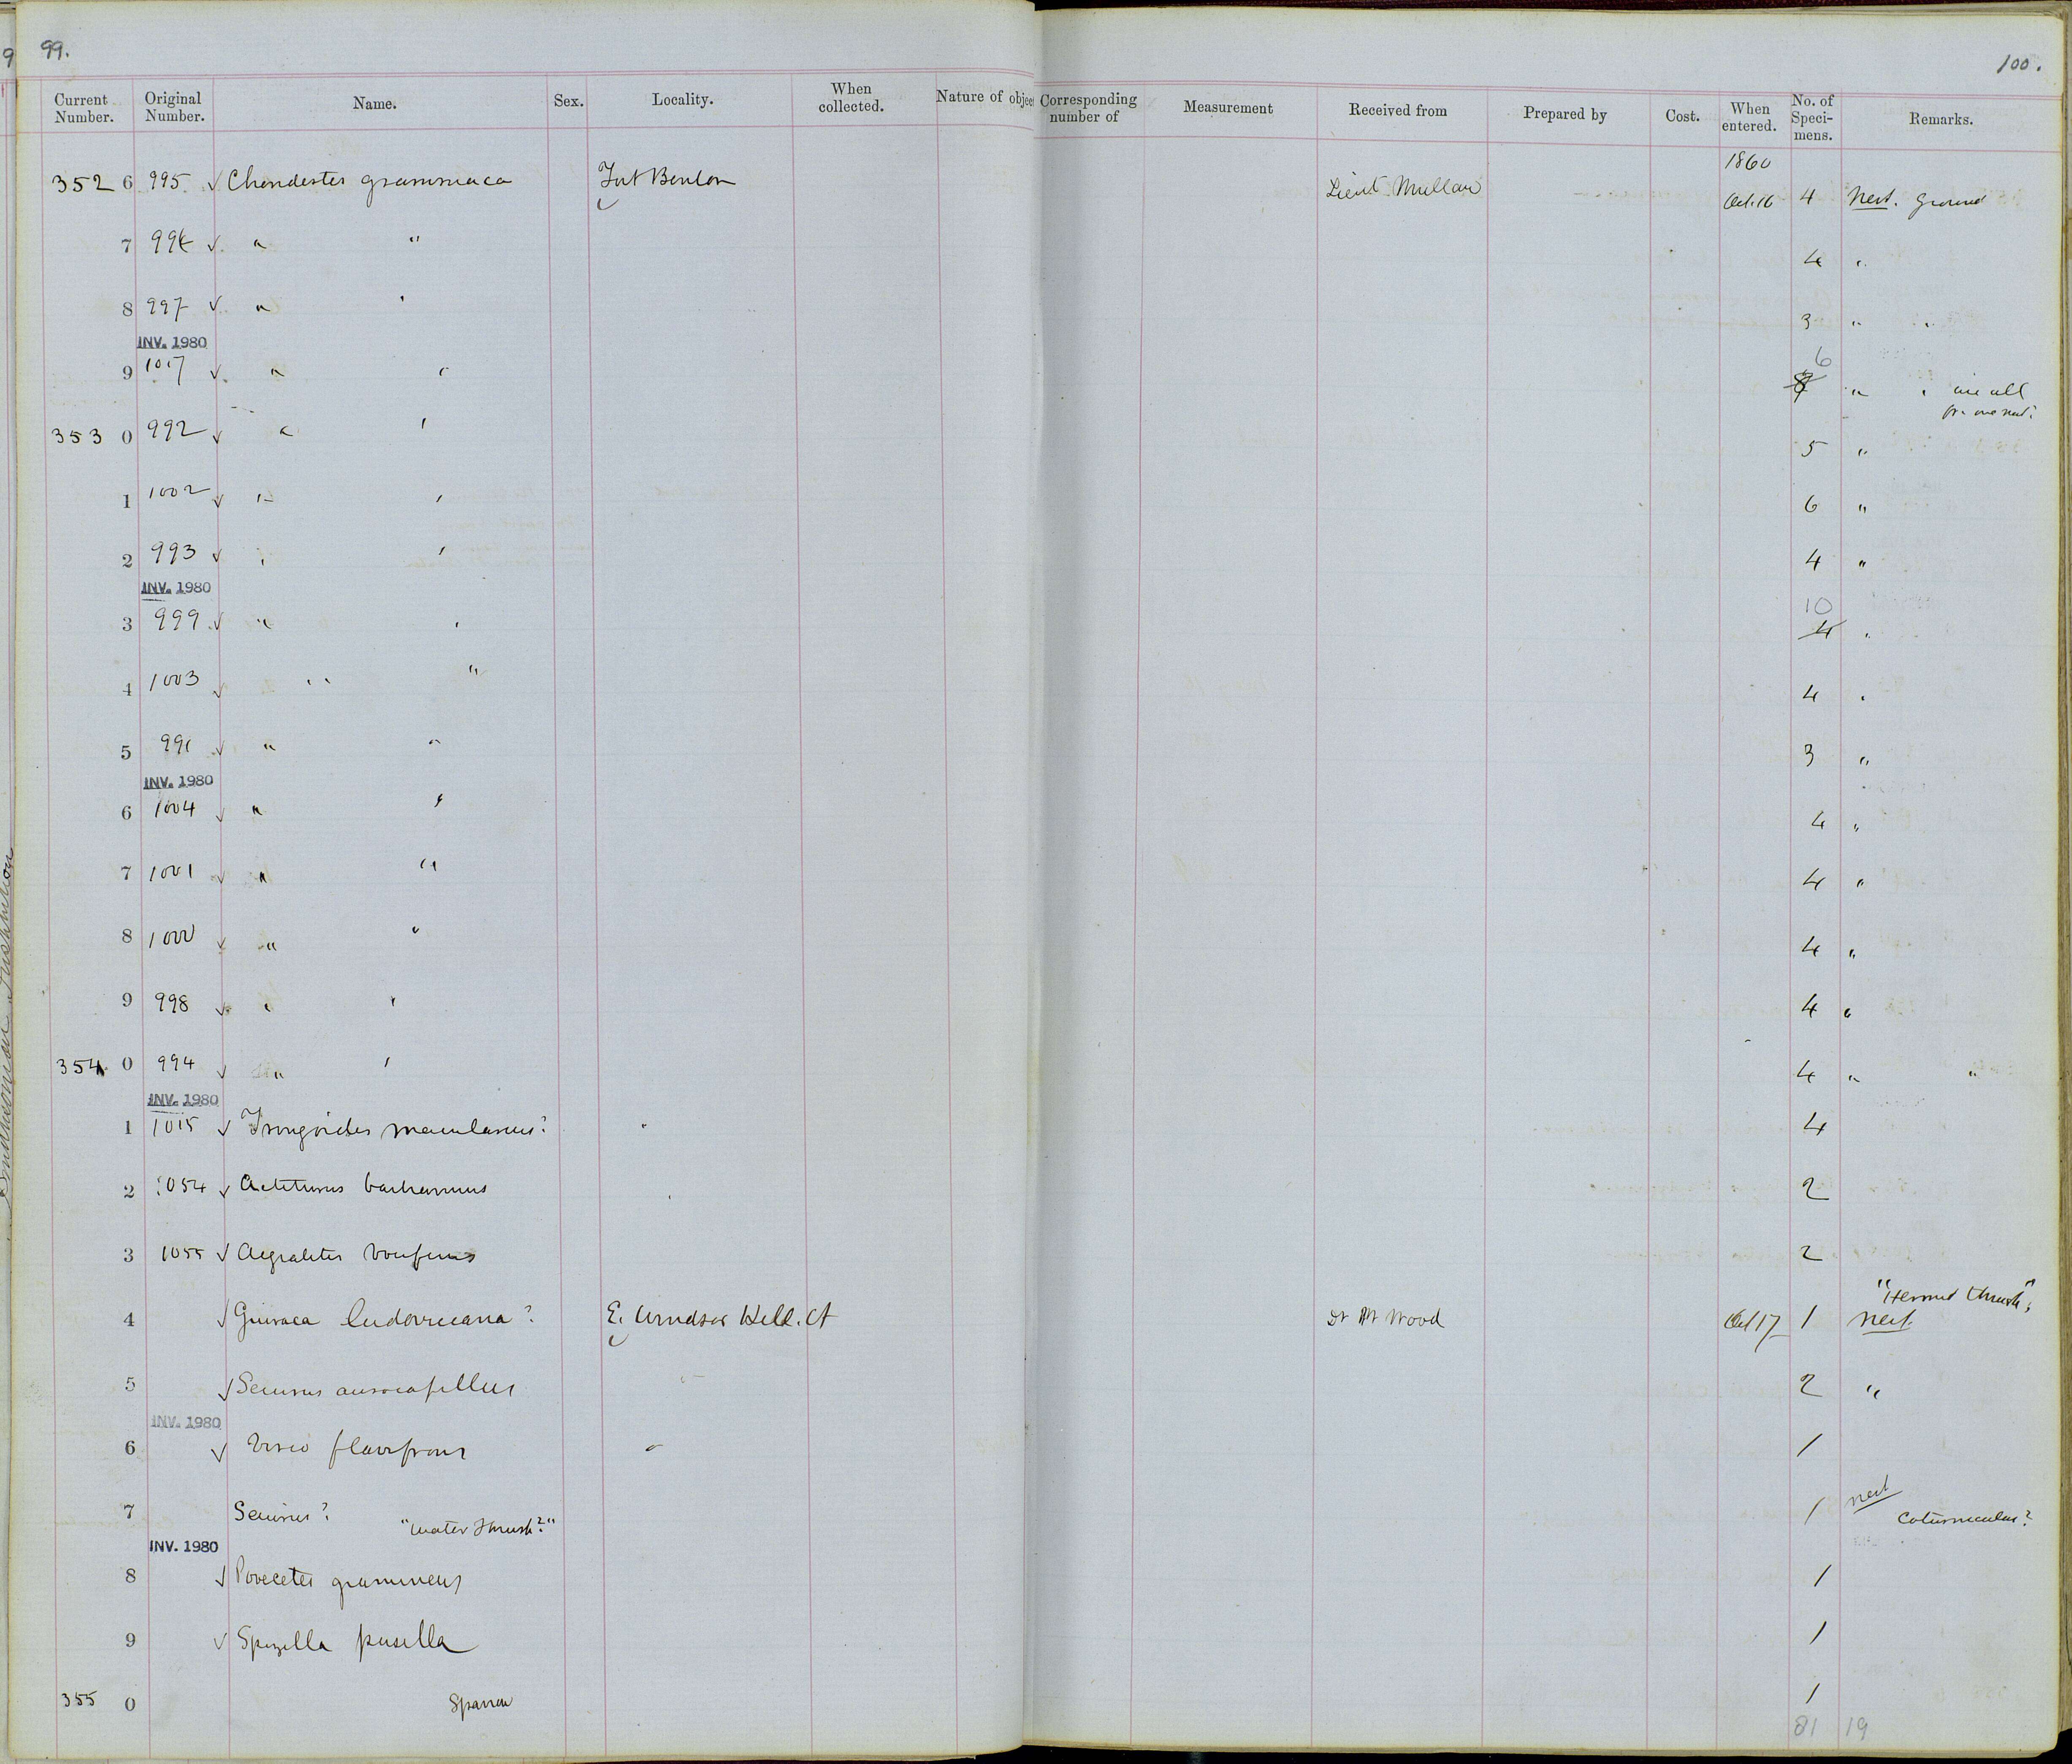 99.
100.
Current Number. Original Number. Name. Sex. Locality. When collected. Nature of objec Corresponding number of Measurement Received from Prepared by Cost. When entered. No. of Speci-mens. Remarks.
1860
352 6 995 ✓ Chondestes grammaca Fort Benton Lieut Mullan Oct. 16 4 Nest. Ground
7 996 ✓ " " 4 "
8 997 ✓ " " 3 " "
INV. 1980
6
9 1017 ✓ " " 8 " " are all
fr. one nest?
353 0 992 ✓ " " 5 "
1 1002 ✓ " " 6 "
2 993 ✓ " " 4 "
INV. 1980
10
3 999 ✓ " " 4 "
4 1003 ✓ " " 4 "
5 991 ✓ " " 3 "
INV. 1980
6 1004 ✓ " " 4 "
7 1001 ✓ " " 4 "
8 1000 ✓ " " 4 "
9 998 ✓ " " 4 "
354 0 994 ✓ " " 4 " "
INV. 1980
1 1015 ✓ 4
2 1054 ✓ Actiturus bartramius 2
3 1055 ✓ Aegialitis vociferus 2
"Hermit thrush"
4 ✓ Guiraca ludoviciana? E. Windsor Hill. Ct Dr Wm Wood Oct 17 1 Nest.
5 ✓ Seiurus aurocapillus 2 "
INV. 1980
6 ✓ Vireo flavifrons " 1
7 Seiurus? "Water thrush?" 1 nest
Coturniculus?
INV. 1980
8 ✓ Poocetes gramineus 1
9 ✓ Spizella pusilla 1
355 0 Sparrow 1
81 19
Smithsonian Institution